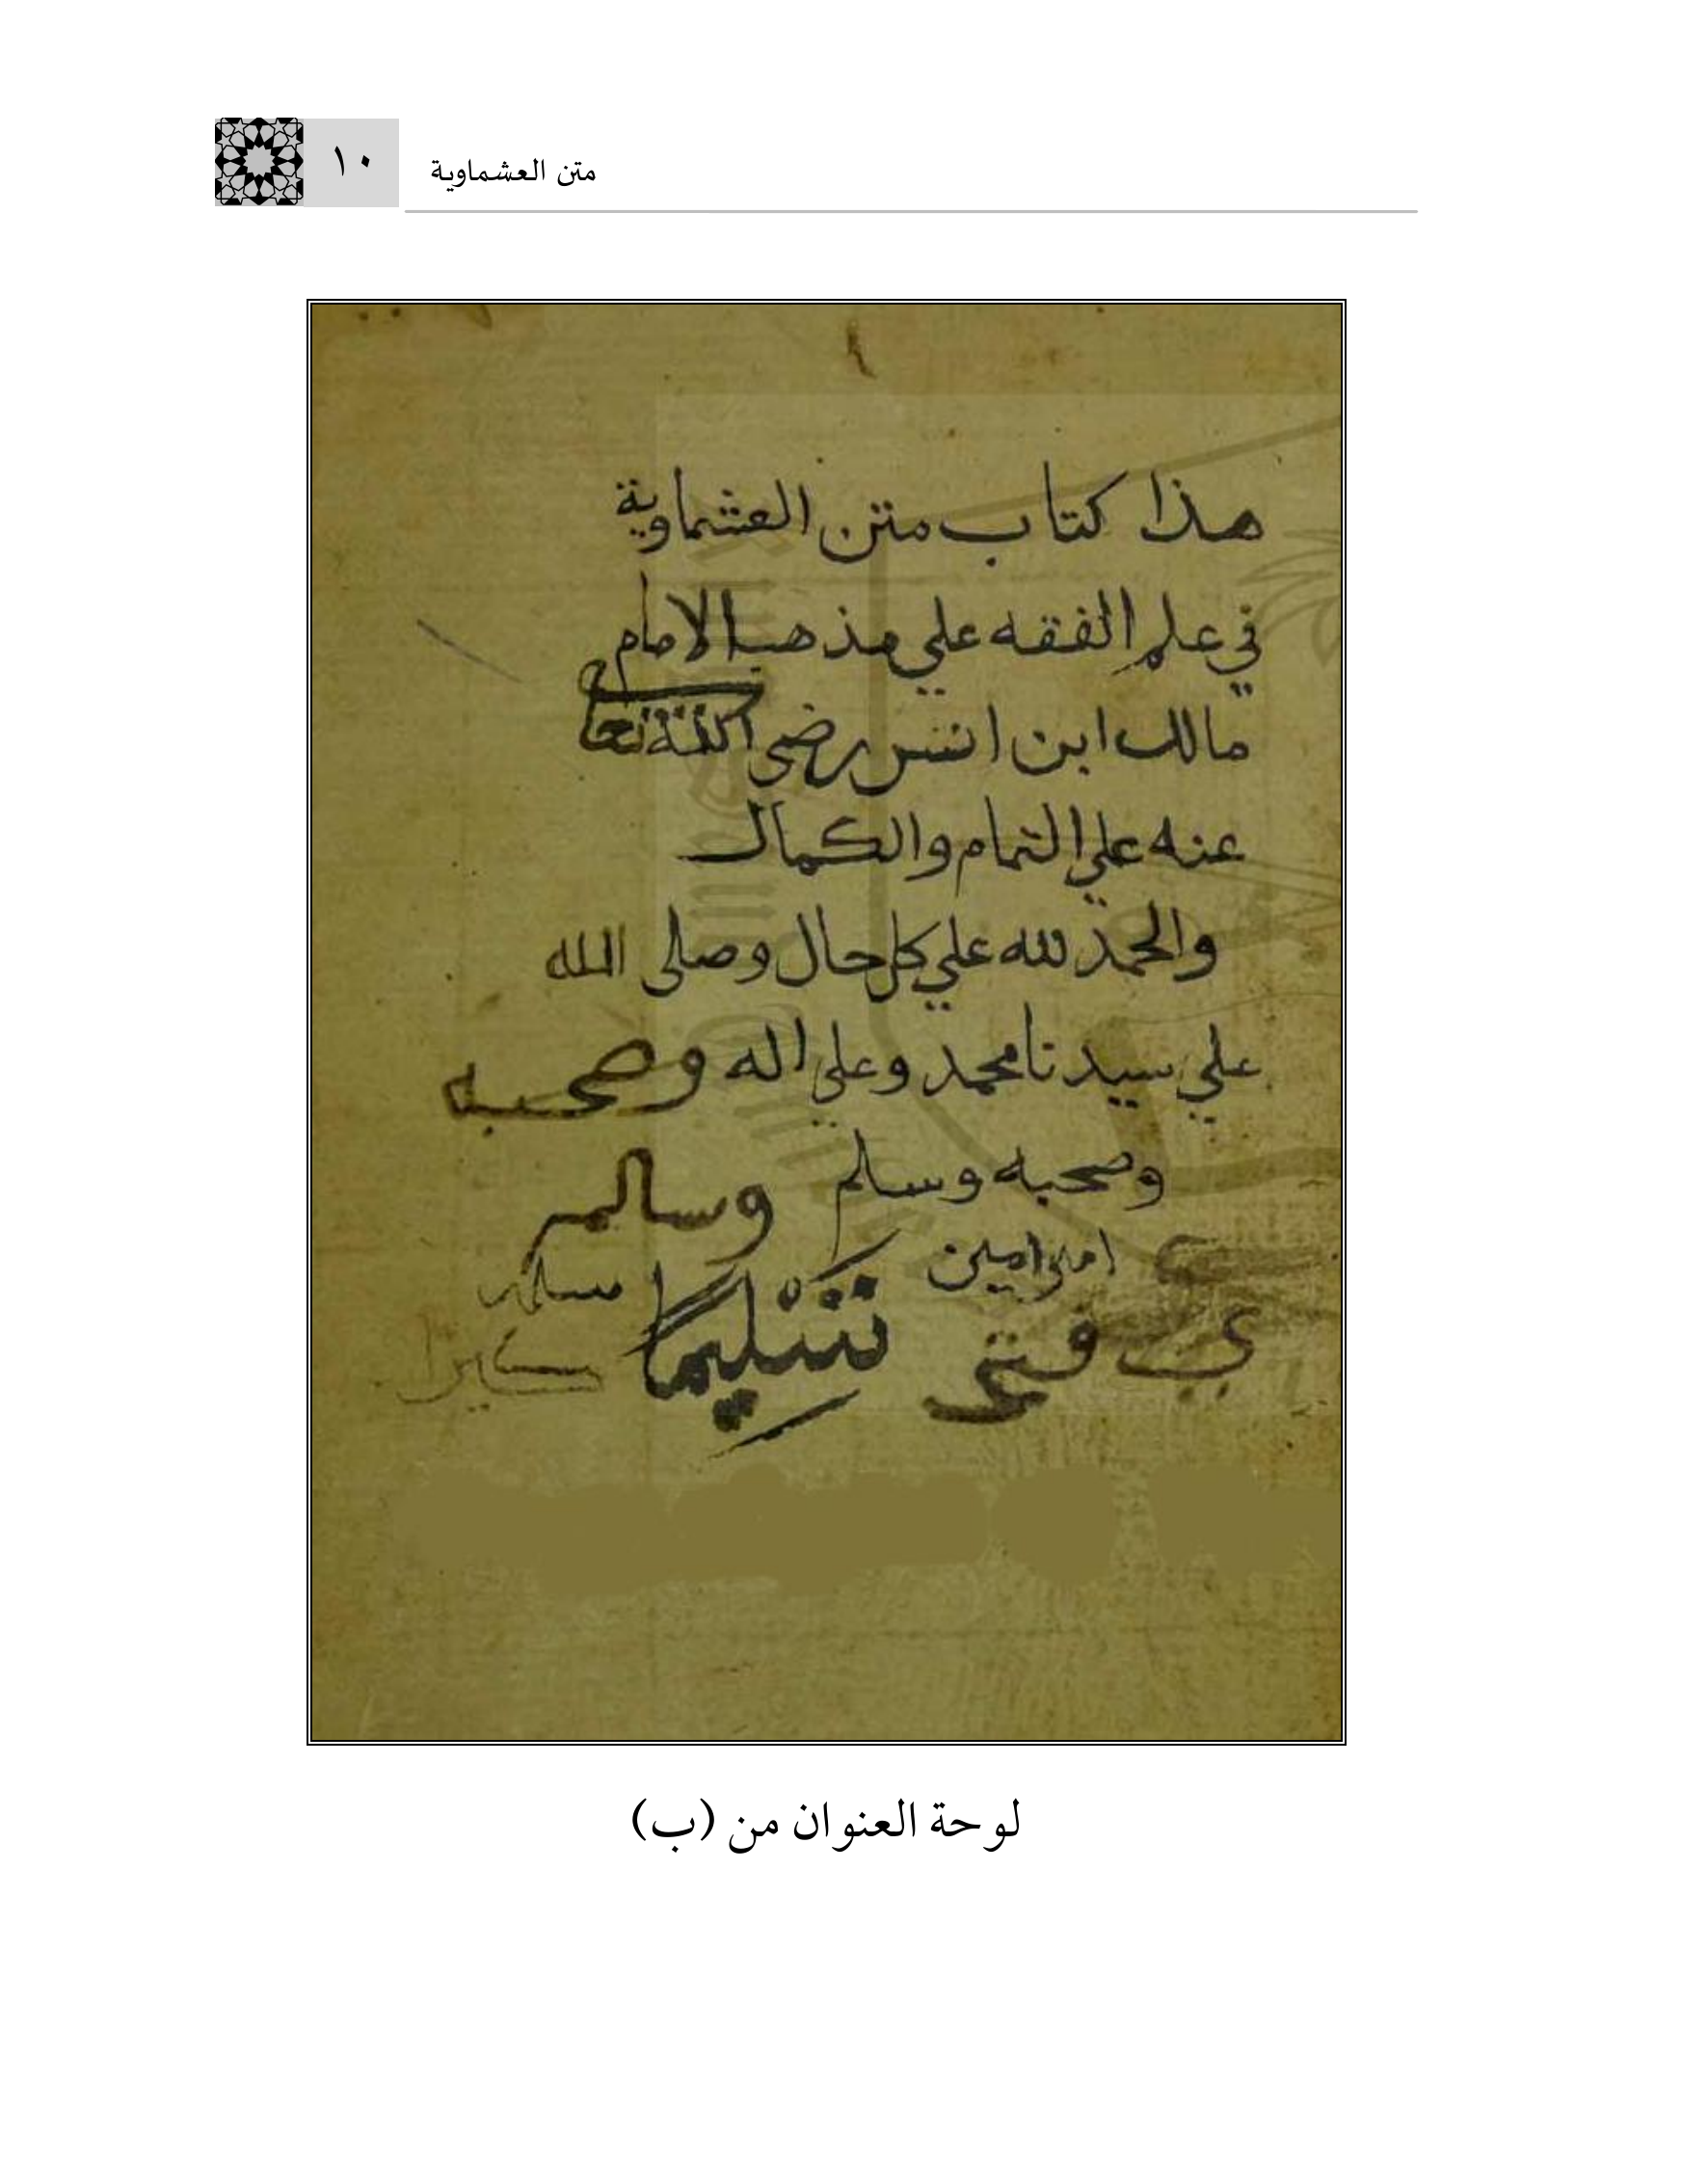 متن العشماوية ١٠
هذا كتاب متن العشماوية
في علم الفقه علي مذهب الامام
مالك ابن انس رضي الله تعا
عنه علي التمام والكمال
والحمد لله علي كل حال وصلى الله
علي سيدنا محمد وعلي اله وصحبه
وصحبه وسلم وسالم
امين
تسليما
كيرا
لوحة العنوان من (ب)